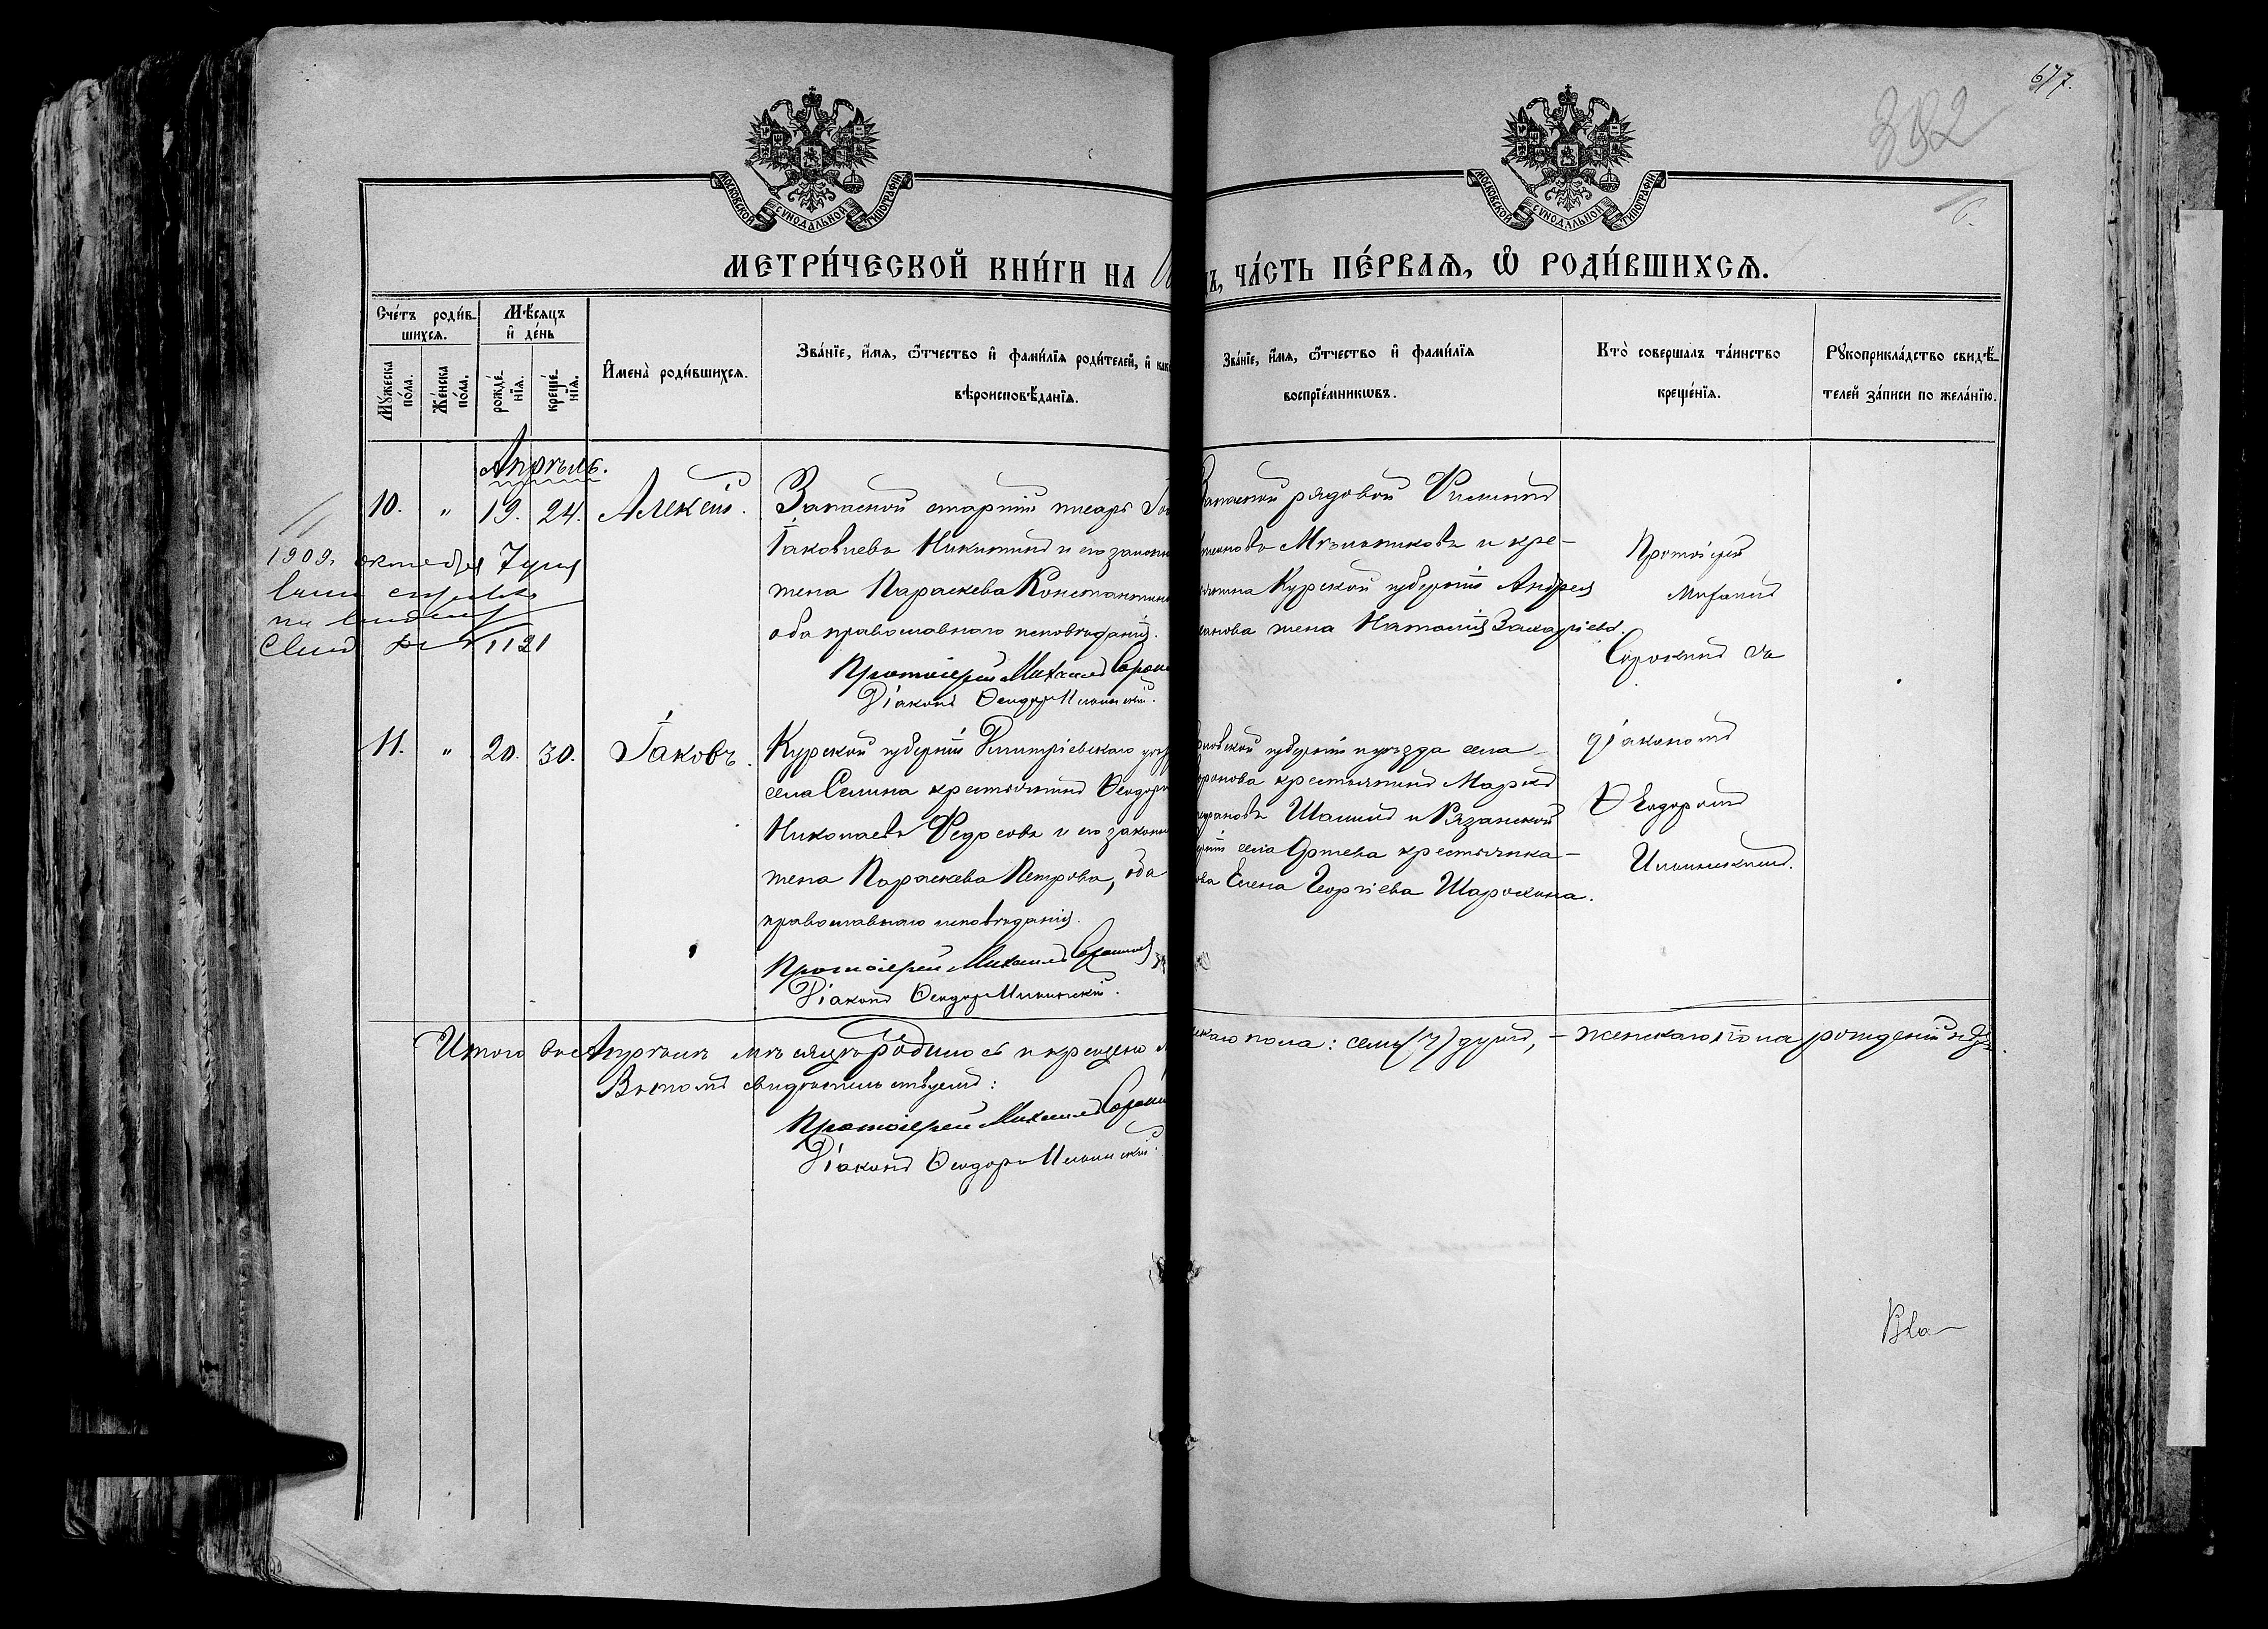 677.
392
6.
МОСКОВСКОЙ СУНОДАЛЬНОЙ ТИПОГРАФІИ
МОСКОВСКОЙ СУНОДАЛЬНОЙ ТИПОГРАФІИ
МЕТРИ́ЧЕСКОЙ КНИ́ГИ НА
ЧА́СТЬ ПЕ́РВАЯ, Ѡ РОДИ́ВШИХСЯ.
Сче́тъ роди́в-
шихся.
Мѣ́сяцъ
и де́нь
Му́жеска
по́ла.
Же́нска
по́ла.
рожде́-
нія.
креще́-
нія.
Имена̀ роди́вшихся.
Зва́ніе, и́мя, ѻ҆́тчество и фами́лія роди́телей, и как
вѣроисповѣ́данія.
Зва́ніе, и́мя, ѻ҆́тчество и фами́лія
воспріе́мникωвъ.
Кто̀ совершалъ та́инство
креще́нія.
Рукоприкла́дство свидѣ́-
телей за́писи по жела́нію.
Апрѣль.
10. " 19. 24. Алексій.
Запасной старшій писарь
Іаковлевъ Никитинъ и его законн
жена Параскева Константин
оба православнаго исповѣданія.
Протоіерей Михаилъ Сороки
Діаконъ Ѳеодоръ Ильинскій.
Запасной рядовой Филиппъ
Мельниковъ и кре-
Курской губерніи Андрея
жена Наталія Захаріева.
Протоіерей
Михаилъ
Сорокинъ съ
1909. октября 7 дня
1121
11. " 20. 30. Іаковъ.
Курской губерніи Димитріевскаго уѣзд
села Селина крестьянинъ Ѳеодоръ
Николаевъ Федосовъ и его законн
жена Параскева Петрова, оба
православнаго исповѣданія.
Протоіерей Михаилъ Сорокинъ
Діаконъ Ѳеодоръ Ильинскій.
губерніи и уѣзда села
крестьянинъ Маркъ
Шашинъ и Рязанской
села крестьянка
Елена Георгіева Шарохина.
діакономъ
Ѳеодоромъ
Ильинскимъ.
Итого въ Апрѣлѣ мѣсяцѣ родилось и крещено
скаго пола: семь (7) душъ, – женскаго пола рожденій нѣтъ.
Въ томъ свидѣтельствуемъ:
Протоіерей Михаилъ Сороки
Діаконъ Ѳеодоръ Ильинскій.